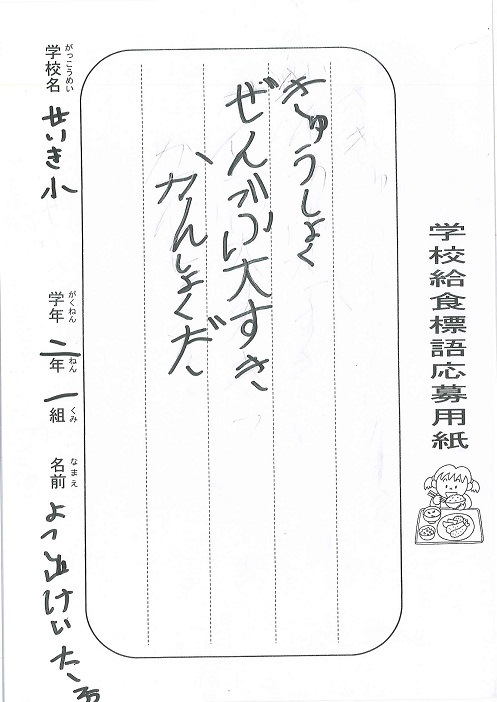 学校給食標語応募用紙
きゅうしょく
ぜんぶ大すき、
かんしょくだ、
がっこうめい
学校名 せいき小
がくねん ねん くみ
学年 二年 一組
なまえ
名前 よつ けいた